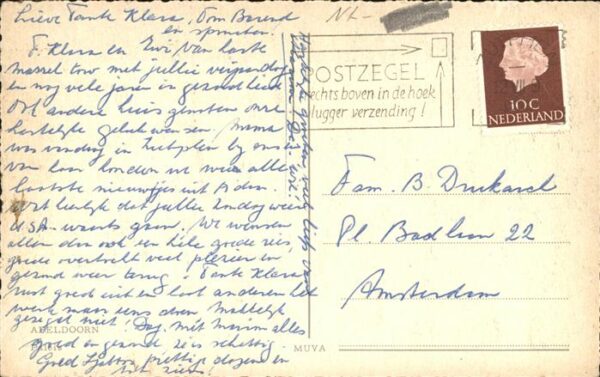 Lieve Tante Klara, Oom Barend
en spruiten!
T. Klara en Evi van harte
met jullie verjaardag
en nog vele jaren in gezondheid
Ook andere huisgenoten onze
hartelijke gelukwensen. Mama
was vandaag in Zutphen bij ons
van haar hoorden we weer alle
laatste nieuwtjes uit A'dam.
Wat heerlijk dat jullie Zondag weer
U.S.A. waarts gaan. We wensen
allen dan ook een hele goede reis,
goede overtocht veel plezier en
gezond weer terug! Tante Klara
rust goed uit en laat anderen het
werk maar eens doen. Makkelijk
gezegd niet! Dag, met alles
goed en gezond
Goed prettige dagen en
tot ziens!
NL-
POSTZEGEL
rechts boven in de hoek
vlugger verzending!
10 C
NEDERLAND
Fam. B. Drukarch
Pl. Badlaan 22
Amsterdam
APELDOORN
MUVA